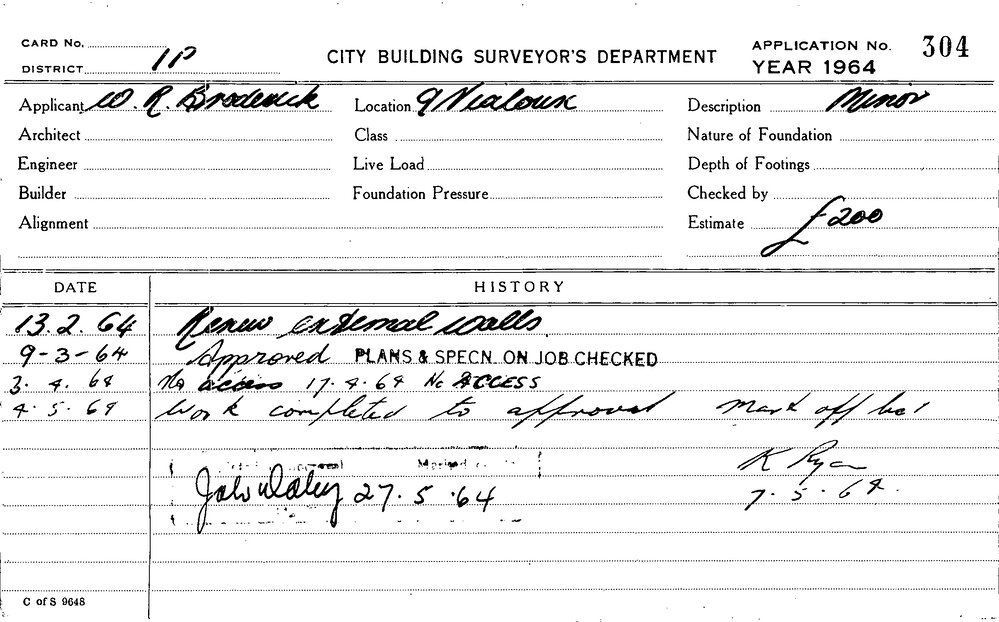 CARD No.
DISTRICT 1P
CITY BUILDING SURVEYOR'S DEPARTMENT
APPLICATION No. 304
YEAR 1964
Applicant W. R. Broderick Location 9 Vialoux Description Minor
Architect Class Nature of Foundation
Engineer Live Load Depth of Footings
Builder Foundation Pressure Checked by
Alignment Estimate £200
DATE HISTORY
13.2.64 Renew external walls.
9-3-64 Approved PLANS & SPECN. ON JOB CHECKED
3.4.64 No access 17.4.64 No ACCESS
4.5.64 Work completed to approval Mark off
K Ryan
27.5.64 7.5.64.
C of S 9648